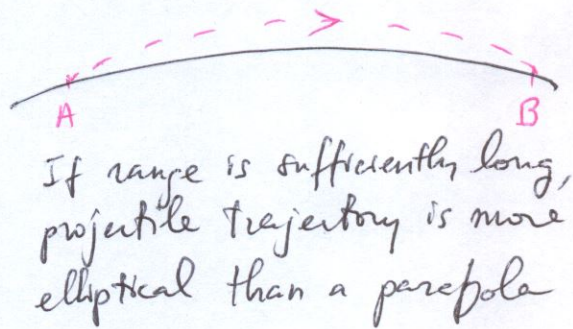 A B
If range is sufficiently long,
projectile trajectory is more
elliptical than a parabola